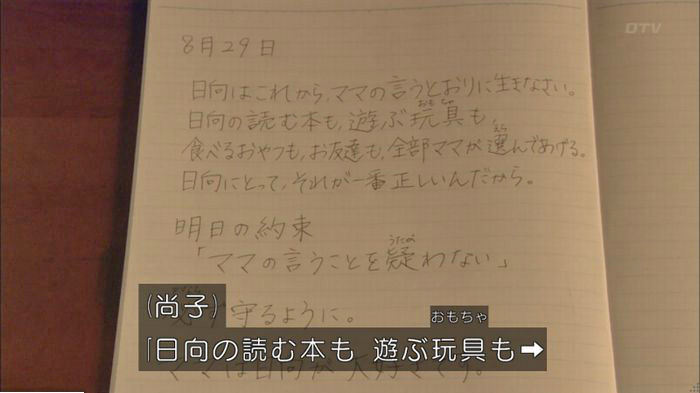 OTV
8月29日
日向はこれから、ママの言うとおりに生きなさい。
おもちゃ
日向の読む本も、遊ぶ玩具も、
えら
食べるおやつも、お友達も、全部ママが選んであげる。
日向にとって、それが一番正しいんだから。
明日の約束
うたが
「ママの言うことを疑わない」
守るように。
(尚子)
おもちゃ
「日向の読む本も 遊ぶ玩具も➡
ママは日向が大好きです。